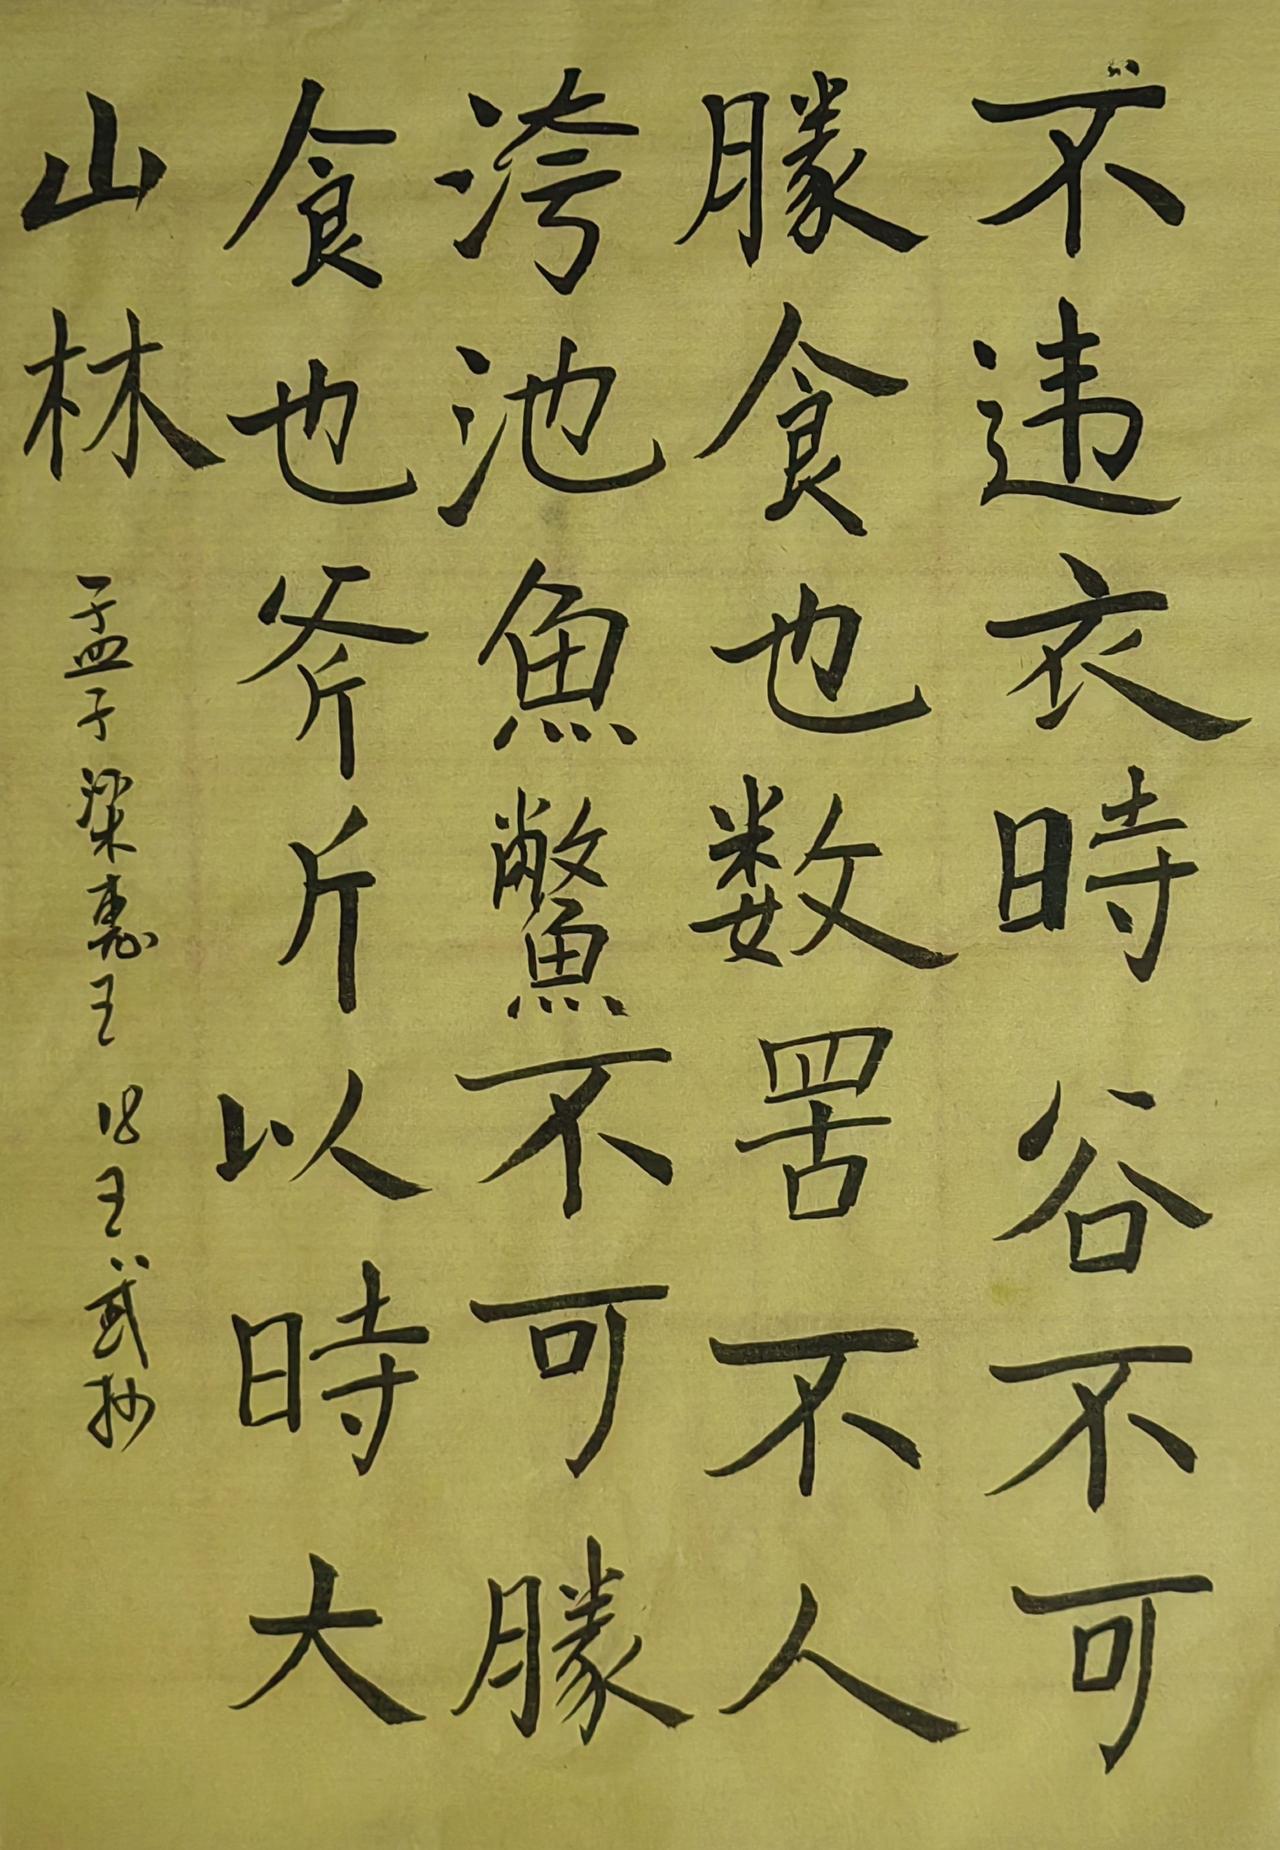 不违衣時谷不可
朦食也数罟不人
洿池魚鱉不可朦
食也斧斤以時大
山林
孟子梁惠王 18王 抄